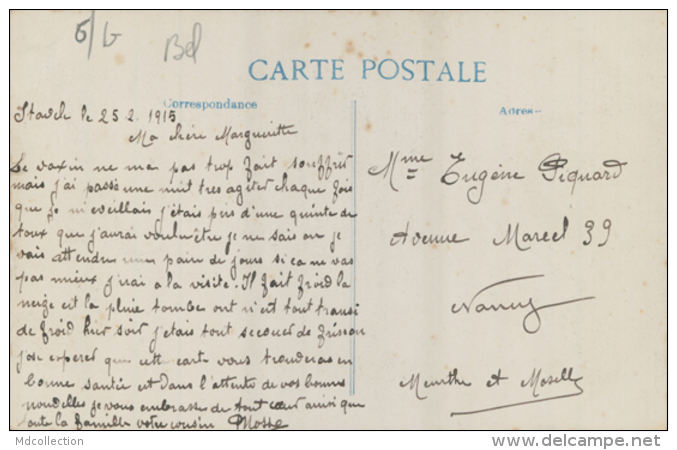 6/G
Bel
CARTE POSTALE
Correspondance
Adres
le 25 2 1915
Ma chère Marguerite
Le vaxin ne ma pas trop fait souffrir
mais j'ai passè une nuit tres agiter chaque fois
que je m'eveillais j'étais pris d'une quinte de
toux que j'aurai voulu être je ne sais ou je
vais attendre une paire de jours si ca ne vas
pas mieux j'irai a la visite. Il fait froid la
neige est la pluie tombe ont n'est tout transi
de froid hier soir j'etais tout secouer de frisson
j'ose esperer que cette carte vous trouveras en
bonne santée et dans l'attente de vos bonnes
nouvelles je vous embrasse de tout cœur ainsi que
toute la famille votre cousin
Mme Eugène Piquard
Avenue Marcel 39
Nancy
Meurthe et Moselle
Mdcollection
www.delcampe.net